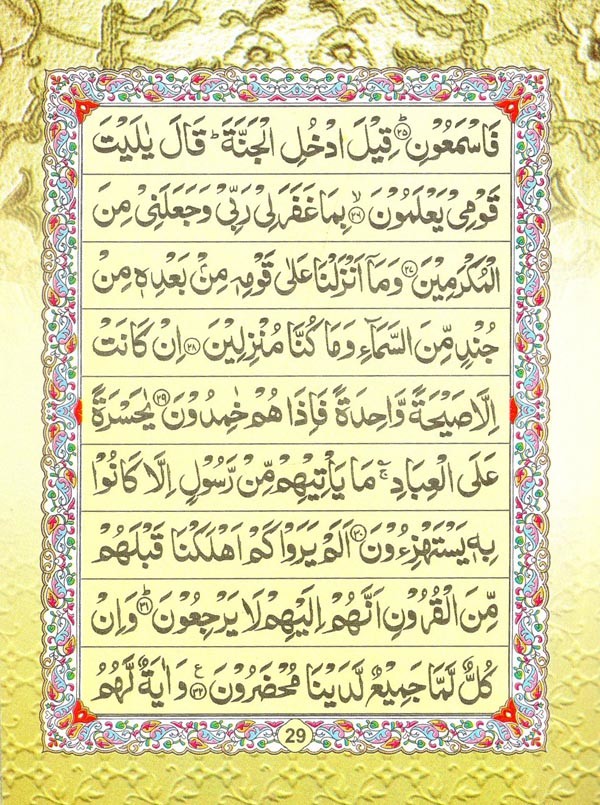 فَاسْمَعُوْنِ ؕ۲۵ قِيْلَ ادْخُلِ الْجَنَّةَ ؕ قَالَ يٰلَيْتَ
قَوْمِيْ يَعْلَمُوْنَ ۙ۲۶ بِمَا غَفَرَ لِيْ رَبِّيْ وَجَعَلَنِيْ مِنَ
الْمُكْرَمِيْنَ ۲۷ وَمَاۤ اَنْزَلْنَا عَلٰى قَوْمِهٖ مِنْۢ بَعْدِهٖ مِنْ
جُنْدٍ مِّنَ السَّمَآءِ وَمَا كُنَّا مُنْزِلِيْنَ ۲۸ اِنْ كَانَتْ
اِلَّا صَيْحَةً وَّاحِدَةً فَاِذَا هُمْ خٰمِدُوْنَ ۲۹ يٰحَسْرَةً
عَلَى الْعِبَادِ ۚ مَا يَاْتِيْهِمْ مِّنْ رَّسُوْلٍ اِلَّا كَانُوْا
بِهٖ يَسْتَهْزِءُوْنَ ۳۰ اَلَمْ يَرَوْا كَمْ اَهْلَكْنَا قَبْلَهُمْ
مِّنَ الْقُرُوْنِ اَنَّهُمْ اِلَيْهِمْ لَا يَرْجِعُوْنَ ؕ۳۱ وَاِنْ
كُلٌّ لَّمَّا جَمِيْعٌ لَّدَيْنَا مُحْضَرُوْنَ ۳۲ ع وَاٰيَةٌ لَّهُمُ
29